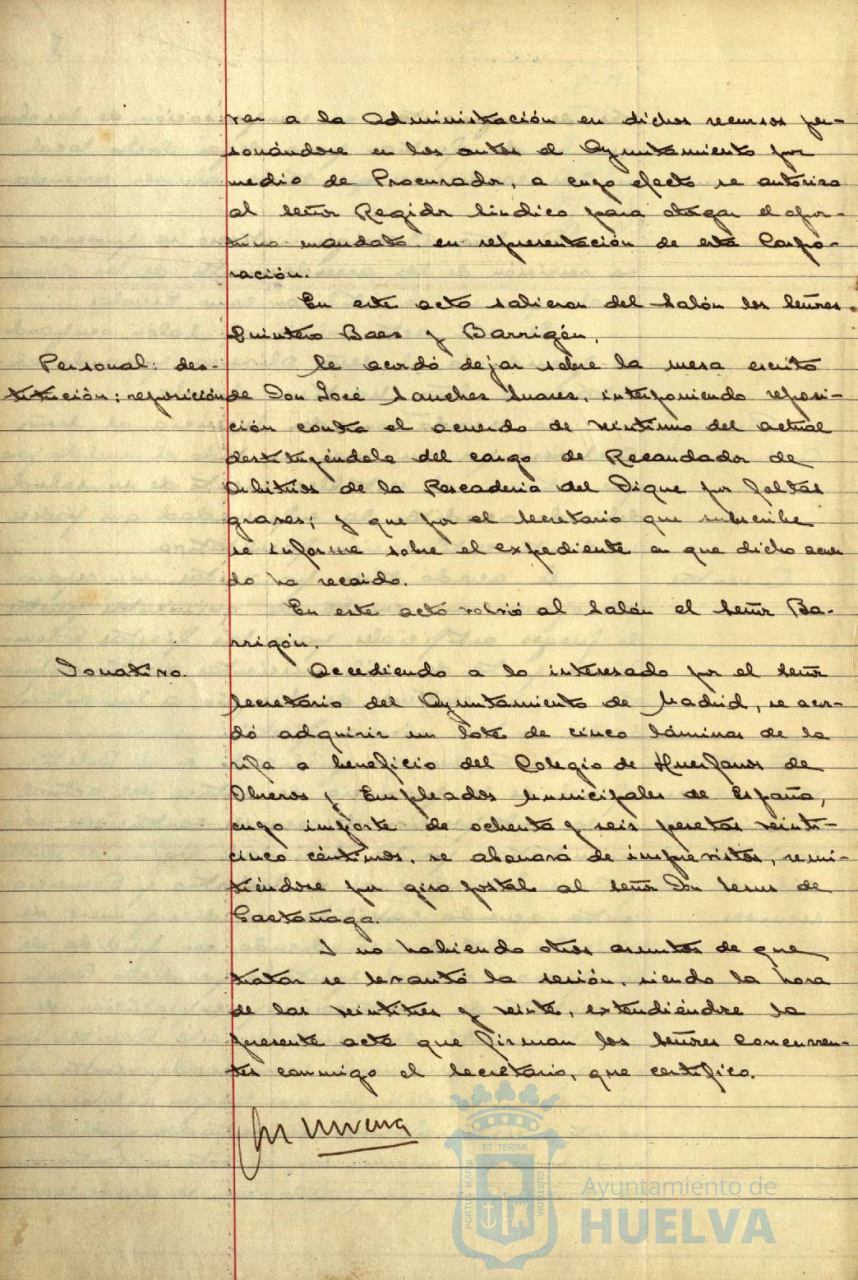 var a la Administración en dichos recursos per-
sonándose en los autos el Ayuntamiento por
medio de Procurador, a cuyo efecto se autoriza
al Señor Regidor Síndico para otorgar el opor-
tuno mandato en representación de esta Corpo-
ración.
En este acto salieron del Salón los Señores
Quintero Baes y Barrigón.
Personal: des-
titución: reposición
Se acordó dejar sobre la mesa escrito
de Don José Sanches Suares, interponiendo reposi-
ción contra el acuerdo de veintiuno del actual
destituyéndole del cargo de Recaudador de
Arbitrios de la Pescaderia del Dique por faltas
graves; y que por el Secretario que subscribe
se informe sobre el expediente en que dicho acuer
do ha recaido.
En este acto volvió al Salón el Señor Ba-
rrigón.
Donativo.
Accediendo a lo interesado por el Señor
Secretario del Ayuntamiento de Madrid, se acor-
dó adquirir un lote de cinco láminas de la
rifa a beneficio del Colegio de Huerfanos de
Obreros y Empleados Municipales de España,
cuyo importe de ochenta y seis pesetas veinti-
cinco céntimos, se abonará de imprevistos, remi-
tiéndose por giro postal al Señor Don Jesus de
Gastañaga.
Y no habiendo otros asuntos de que
tratar se levantó la sesión, siendo la hora
de las veintitres y veinte, extendiéndose la
presente acta que firman los Señores Concurren-
tes conmigo el Secretario, que certifico.
ET TERRÆ
PORTUS MARIS
CUSTODIA
Ayuntamiento de
HUELVA